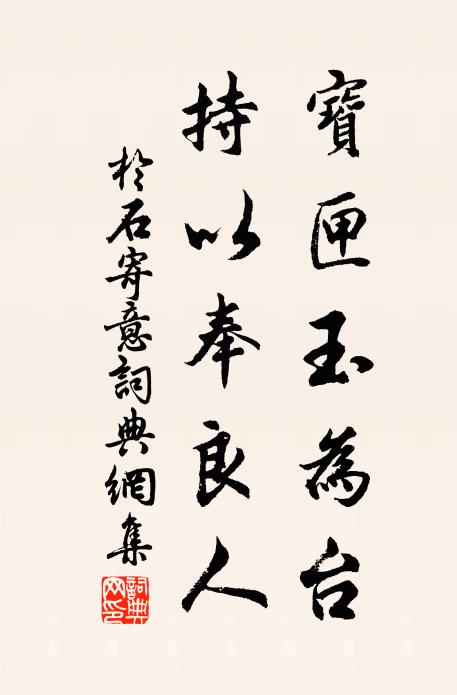 寶匣玉為台
持以奉良人
於石寄意詞典網集
詞典
网印